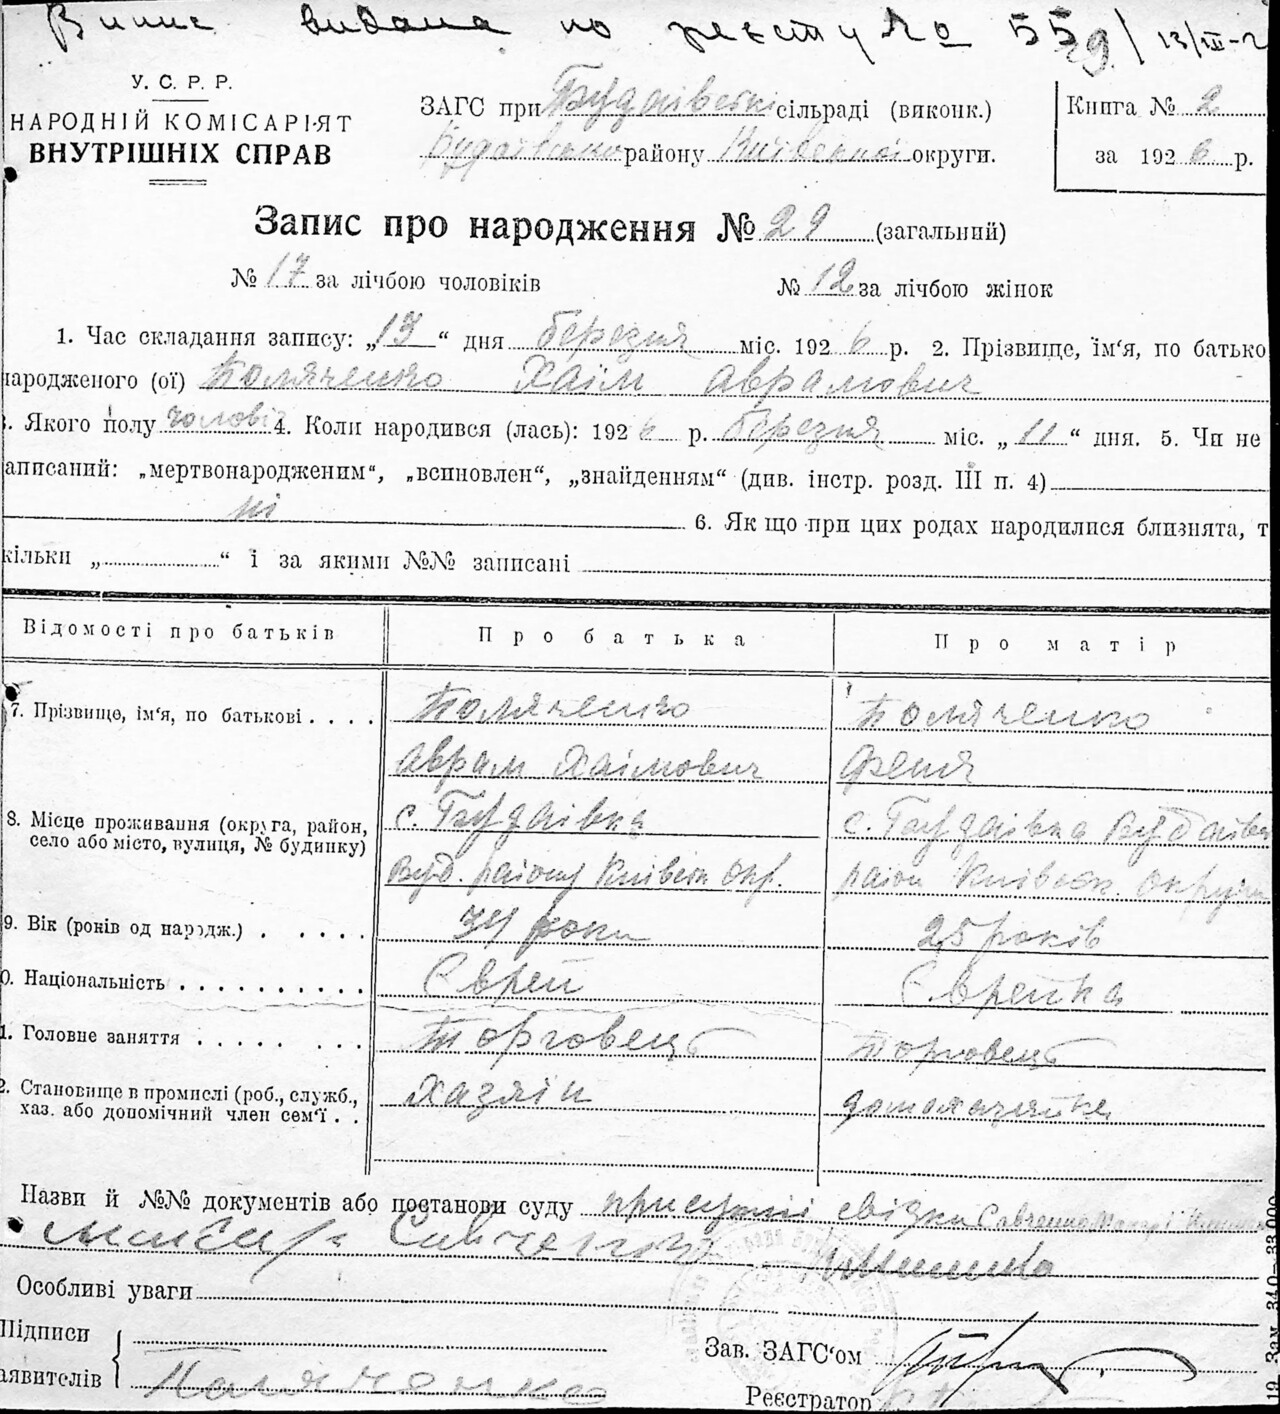 Випис видана по реєстру № 55
У. С. Р. Р.
НАРОДНІЙ КОМІСАРІЯТ
ВНУТРІШНІХ СПРАВ
ЗАГС при Будаївські сільраді (виконк.)
району Київської округи.
Книга № 2
за 1926 р.
Запис про народження № 29 (загальний)
№ 17 за лічбою чоловіків № 12 за лічбою жінок
1. Час складання запису: „13“ дня березня міс. 1926 р. 2. Прізвище, їм'я, по батько
народженого (ої) Поляченко Хаїм Аврамович
3. Якого полу чолові 4. Коли народився (лась): 1926 р. березня міс. „11“ дня. 5. Чи не
записаний: „мертвонародженим“, „всиновлен“, „знайденням“ (див. інстр. розд. III п. 4)
ні 6. Як що при цих родах народилися близнята, т
кільки „ “ і за якими №№ записані
Відомості про батьків Про батька Про матір
7. Прізвище, ім'я, по батькові Поляченко Поляченко
Аврам Хаімович Феня
8. Місце проживання (округа, район, с. Будаівка с. Будаівка Будаівс
село або місто, вулиця, № будинку)
Буд. району Київськ окр. район Київськ округи
9. Вік (років од народж.) 34 роки 25 років
10. Національність Єврей Єврейка
11. Головне заняття Торговець торговець
12. Становище в промислі (роб., служб., Хазяїн домохазяйка
хаз. або допомічний член сем'ї
Назви й №№ документів або постанови суду присутні свідки Савченко
Савченко
Особливі уваги
Підписи
заявителів Поляченко
Зав. ЗАГС'ом
Реєстратор